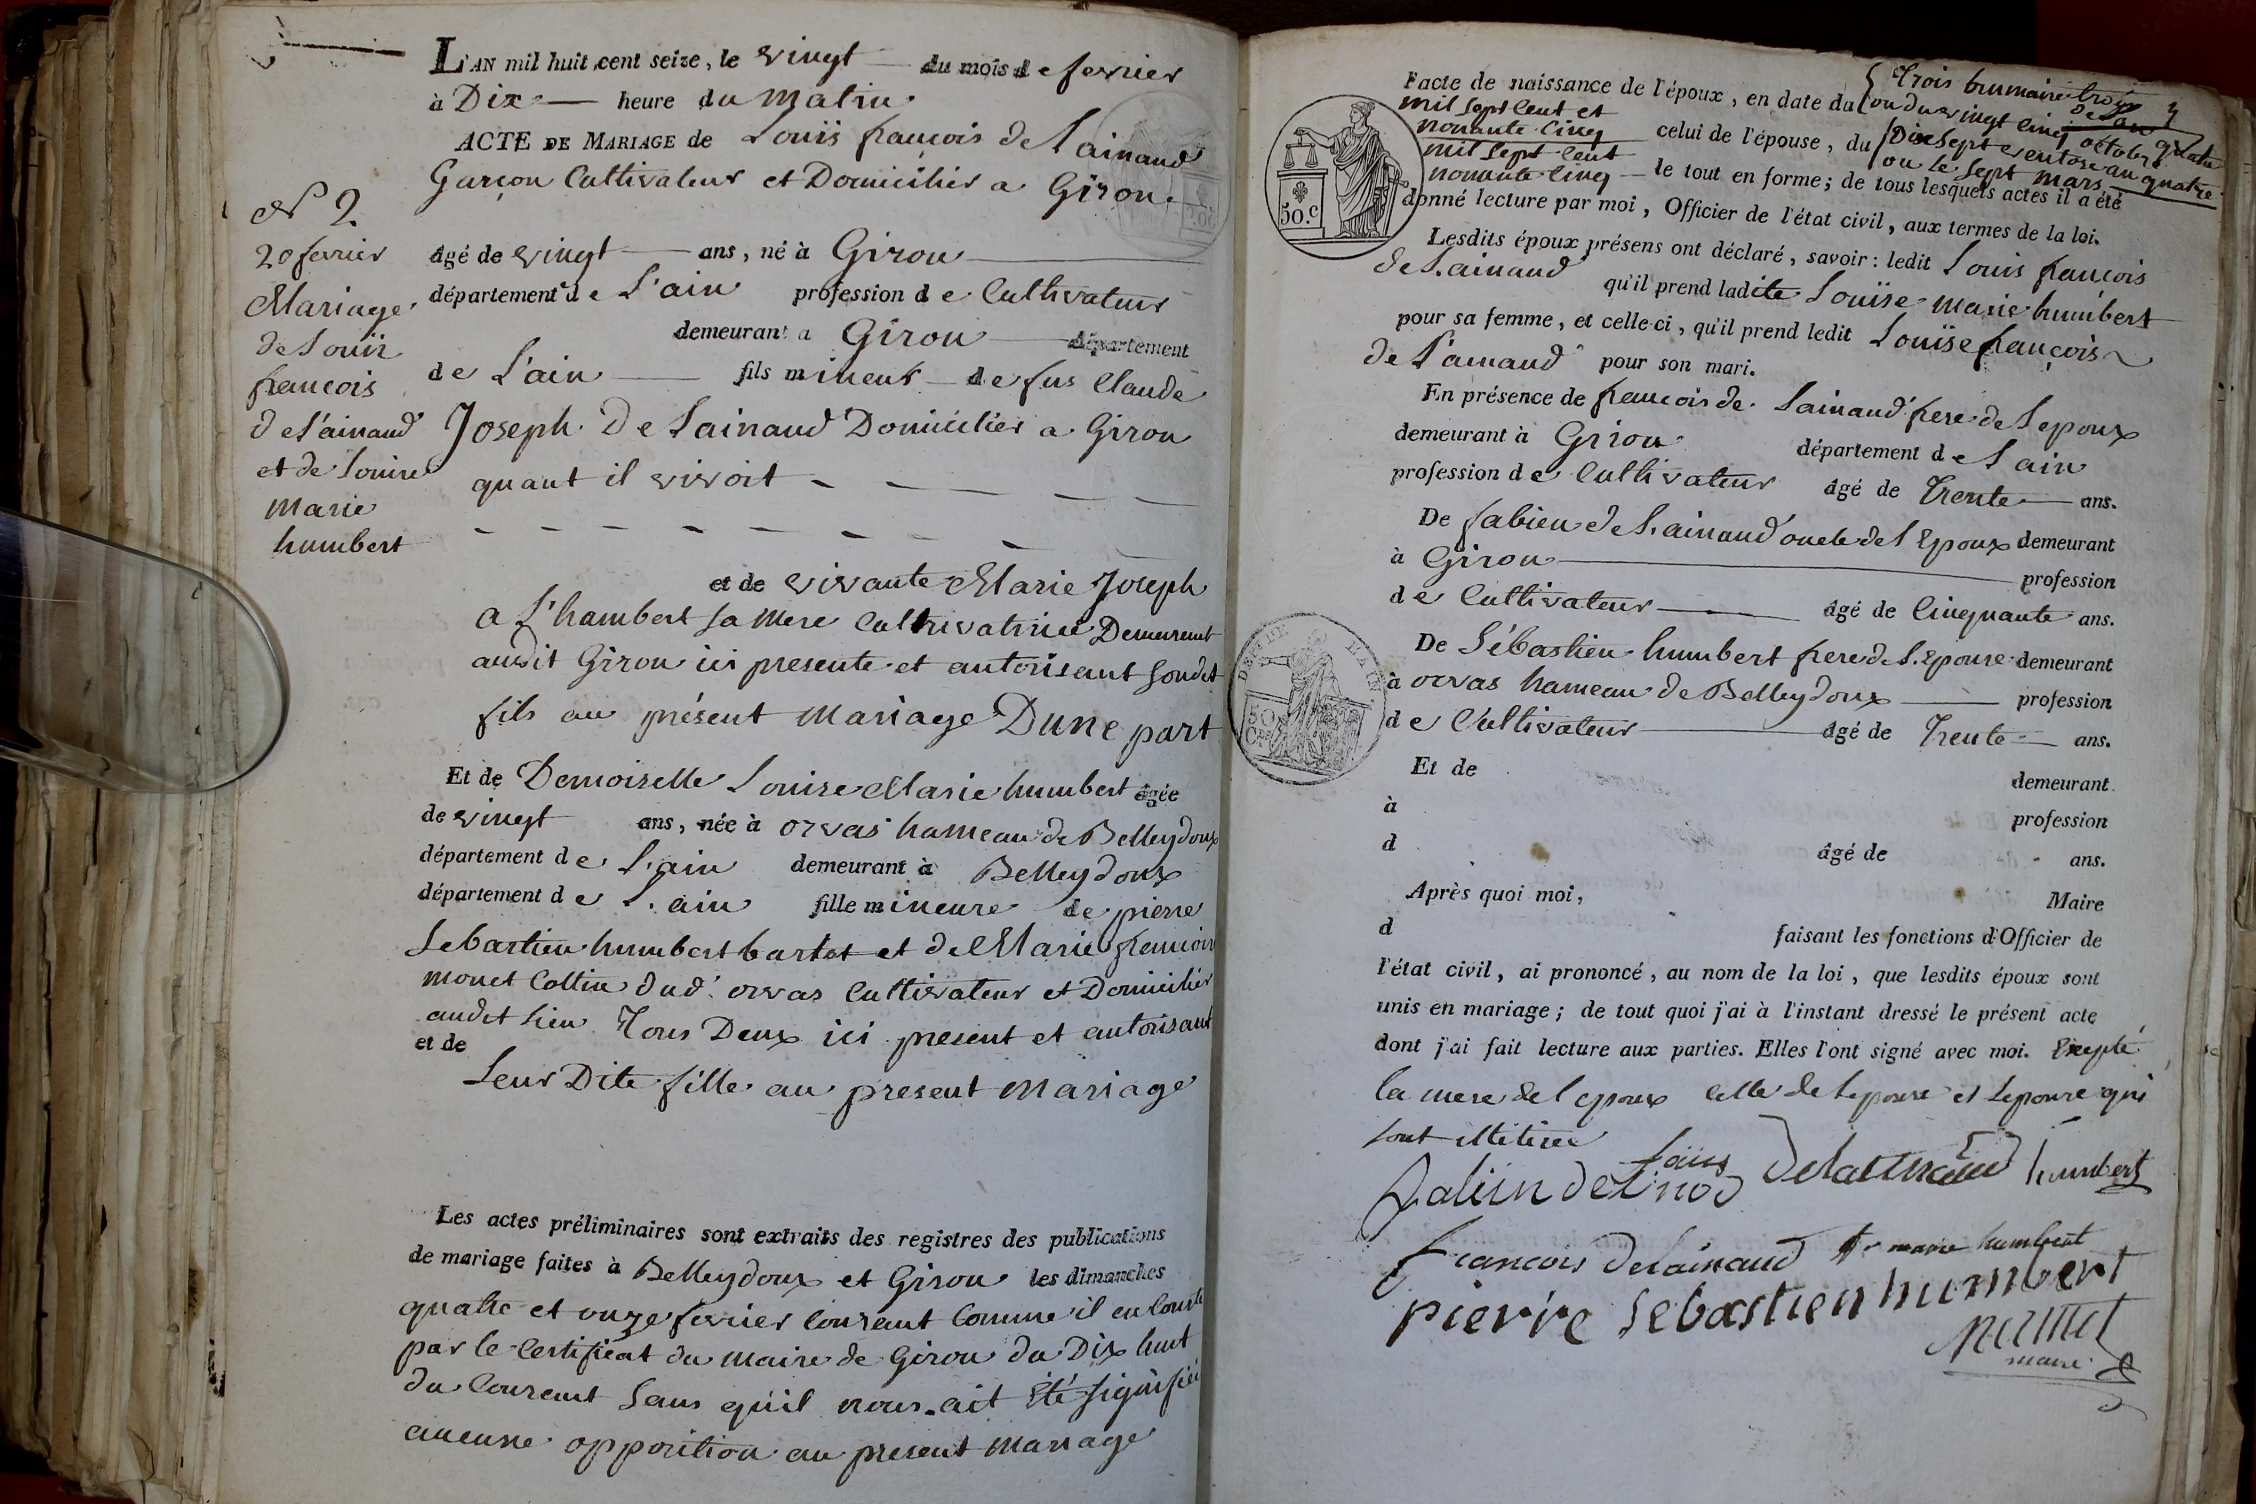 L'AN mil huit cent seize, le vingt du mois de fevrier
à Dix heure du Matin
ACTE DE MARIAGE de Louis françois de Lainaud
Garçon Cultivateur et Domicilier a Giron
âgé de vingt ans, né à Giron
département de L'ain profession de Cultivateur
demeurant a Giron département
de L'ain fils mineur de fus Claude
Joseph De Lainaud Domicilier a Giron
quant il vivoit
et de vivante Marie Joseph
a L'hambert sa Mere Cultrivatrice Demeurent
audit Giron ici presente et autorisant sondet
fils au présent Mariage Dune part
Et de Demoiselle Louise Marie humbert âgée
de vingt ans, née à orvas hameau de Belleydoux
département de L'ain demeurant à Belleydoux
département de L'ain fille mineure de pierre
Sebastien humbert bartet et de Marie françoise
monet Collin dud. orvas Cultivateur et Domicilier
audet Lieu Tous Deux ici present et autorisant
et de
Leur Dite fille au present Mariage
Les actes préliminaires sont extraits des registres des publications
de mariage faites à Belleydoux et Giron les dimanches
quatre et onze fevrier courant Comme il en Conste
par le Certificat du Maire de Giron du Dix huit
du Courant Sans quil nous ait été signifiée
aucune opposition au present Mariage
N° 2
20 fevrier
Mariage
de Louis
francois
de Lainaud
et de Louise
Marie
humbert
l'acte de naissance de l'époux, en date du Trois brumaire
ou du vingt cinq octobre
mil Sept Cent et
nonante Cinq celui de l'épouse, du Dix Sept ventose an quatre
ou le Sept mars
mil Sept Cent
nonante Cinq le tout en forme; de tous lesquels actes il a été
donné lecture par moi, Officier de l'état civil, aux termes de la loi.
50.c
Lesdits époux présens ont déclaré, savoir: ledit Louis françois
de Lainaud qu'il prend ladite Louise Marie humbert
pour sa femme, et celle-ci, qu'il prend ledit Louise françois
de Lainaud pour son mari.
En présence de françois de Lainaud frere de Lepoux
demeurant à Giron département de L'ain
profession de Cultivateur âgé de Trente ans.
De fabien de Lainaud oncle de L'Epoux demeurant
à Giron profession
de Cultivateur âgé de Cinquante ans.
De Sébastien humbert frere de L'Epouse demeurant
à orvas hameau de Belleydoux profession
de Cultivateur âgé de Trente ans.
Et de demeurant
à profession
d âgé de ans.
Après quoi moi, Maire
d faisant les fonctions d'Officier de
l'état civil, ai prononcé, au nom de la loi, que lesdits époux sont
unis en mariage; de tout quoi j'ai à l'instant dressé le présent acte
dont j'ai fait lecture aux parties. Elles l'ont signé avec moi. Excepté
la mere de l'epoux Celle de Lepouse et Lepouse qui
sont illitiree
Louis Delainaud humbert
fabiin deLinod
francois Delainaud
marie humbert
pierre Sebastien humbert
maire